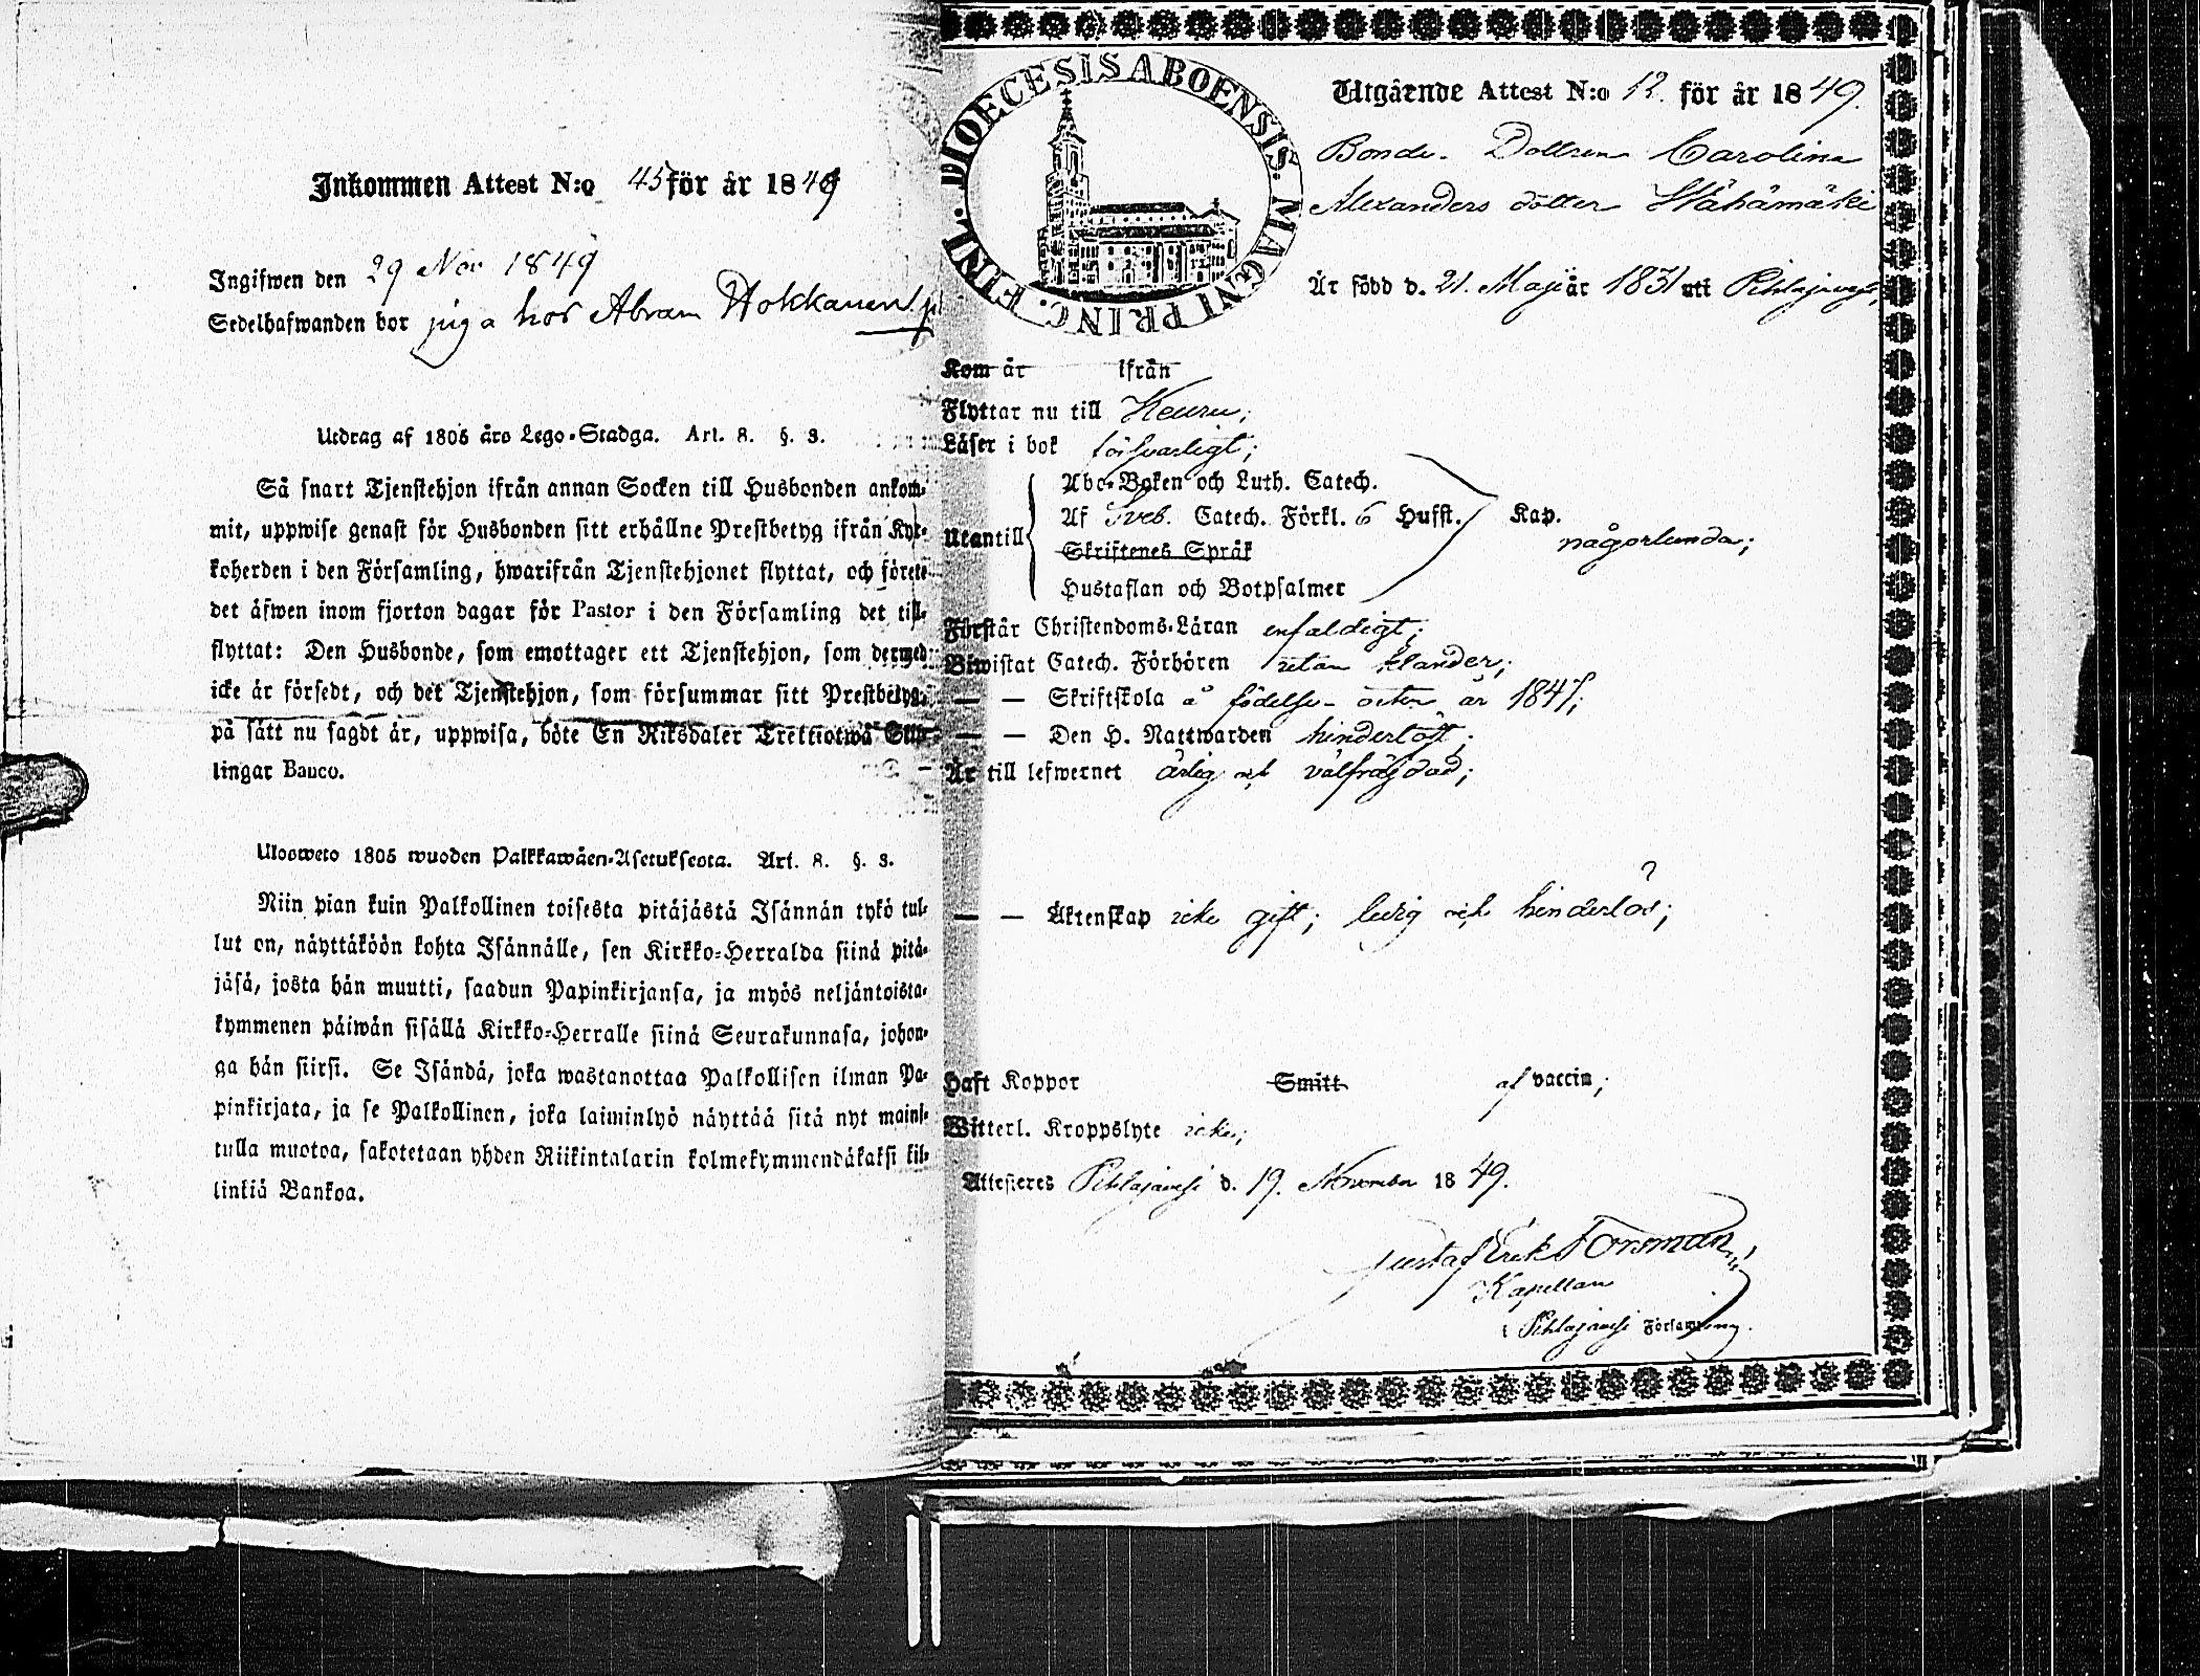 Inkommen Attest N:o 45 för år 1849
Ingifwen den 29 Nov 1849
Sedelhafwanden bor piga hos Abram Hokkanen
Utdrag af 1805 års Lego-Stadga. Art. 8. §. 3.
Så snart Tjenstehjon ifrån annan Socken till Husbonden ankom-
mit, uppwise genast för Husbonden sitt erhållne Prestbetyg ifrån Kyr-
koherden i den Församling, hwarifrån Tjenstehjonet flyttat, och förete
det äfwen inom fjorton dagar för Pastor i den Församling det till-
flyttat: Den Husbonde, som emottager ett Tjenstehjon, som dermed
icke är försedt, och det Tjenstehjon, som försummar sitt Prestbetyg,
på sätt nu sagdt är, uppwisa, böte En Riksdaler Trettiotwå Skil-
lingar Banco.
Ulosweto 1805 wuoden Palkkawäen-Asetuksesta. Art. 8. §. 3.
Niin pian kuin Palkollinen toisesta pitäjästä Isännän tykö tul-
lut on, näyttäköön kohta Isännälle, sen Kirkko-Herralda siinä pitä-
jäsä, josta hän muutti, saadun Papinkirjansa, ja myös neljäntoista-
kymmenen päiwän sisällä Kirkko-Herralle siinä Seurakunnasa, johon-
ga hän siirsi. Se Isändä, joka wastanottaa Palkollisen ilman Pa-
pinkirjata, ja se Palkollinen, joka laiminlyö näyttää sitä nyt maini-
tulla muotoa, sakotetaan yhden Riikintalarin kolmekymmendäkaksi kil-
linkiä Bankoa.
FINL. DIOECESIS ABOENSIS. MAGNI PRINC.
Utgående Attest N:o 12. för år 1849.
Bonde-Dottren Carolina
Alexanders dotter Wähämäki
Är född d. 21. Maji år 1831 uti Pihlajavesi,
Kom år ifrån
Flyttar nu till Keuru;
Läser i bok försvarligt;
Abc-Boken och Luth. Catech.
Utantill Af Sveb. Catech. Förkl. 6 Hufst. Kap.
någorlunda;
Skriftenes Språk
Hustaflan och Botpsalmer
Förstår Christendoms-Läran enfaldigt;
Biwistat Catech. Förhören utan klander;
— — Skriftskola å födelse-orten år 1847;
— — Den H. Nattwarden hinderlöst;
Är till lefwernet ärlig och välfrägdad;
— — Äktenskap icke gift; ledig och hinderlös;
?
Haft Koppor Smitt af vaccin;
Witterl. Kroppslyte icke;
Attesteres Pihlajavesi d. 19. November 1849.
Gustaf Erik Forsman
Kapellan
i Pihlajavesi Församling.